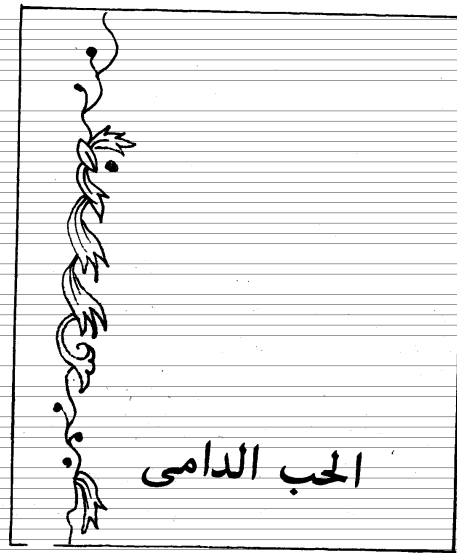 الحب الدامى